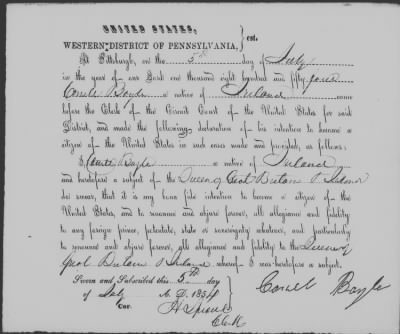 UNITED STATES,
WESTERN DISTRICT OF PENNSYLVANIA, } sct.
At Pittsburgh, on the 5th day of July
in the year of our Lord one thousand eight hundred and fifty four
Boyle a native of Ireland came
before the Clerk of the Circuit Court of the United States for said
District, and made the following declaration of his intention to become a
citizen of the United States in such cases made and provided, as follows:
I, Boyle a native of Ireland
and heretofore a subject of the Queen of Great Britain & Ireland
do swear, that it is my bona fide intention to become a citizen of the
United States, and to renounce and abjure forever, all allegiance and fidelity
to any foreign prince, potentate, state or sovereignty whatever, and particularly
to renounce and abjure forever, all allegiance and fidelity to the Queen of
Great Britain & Ireland whereof I was heretofore a subject.
Sworn and Subscribed this 5th day
of July A. D. 1854
Boyle
Cor.
Clerk